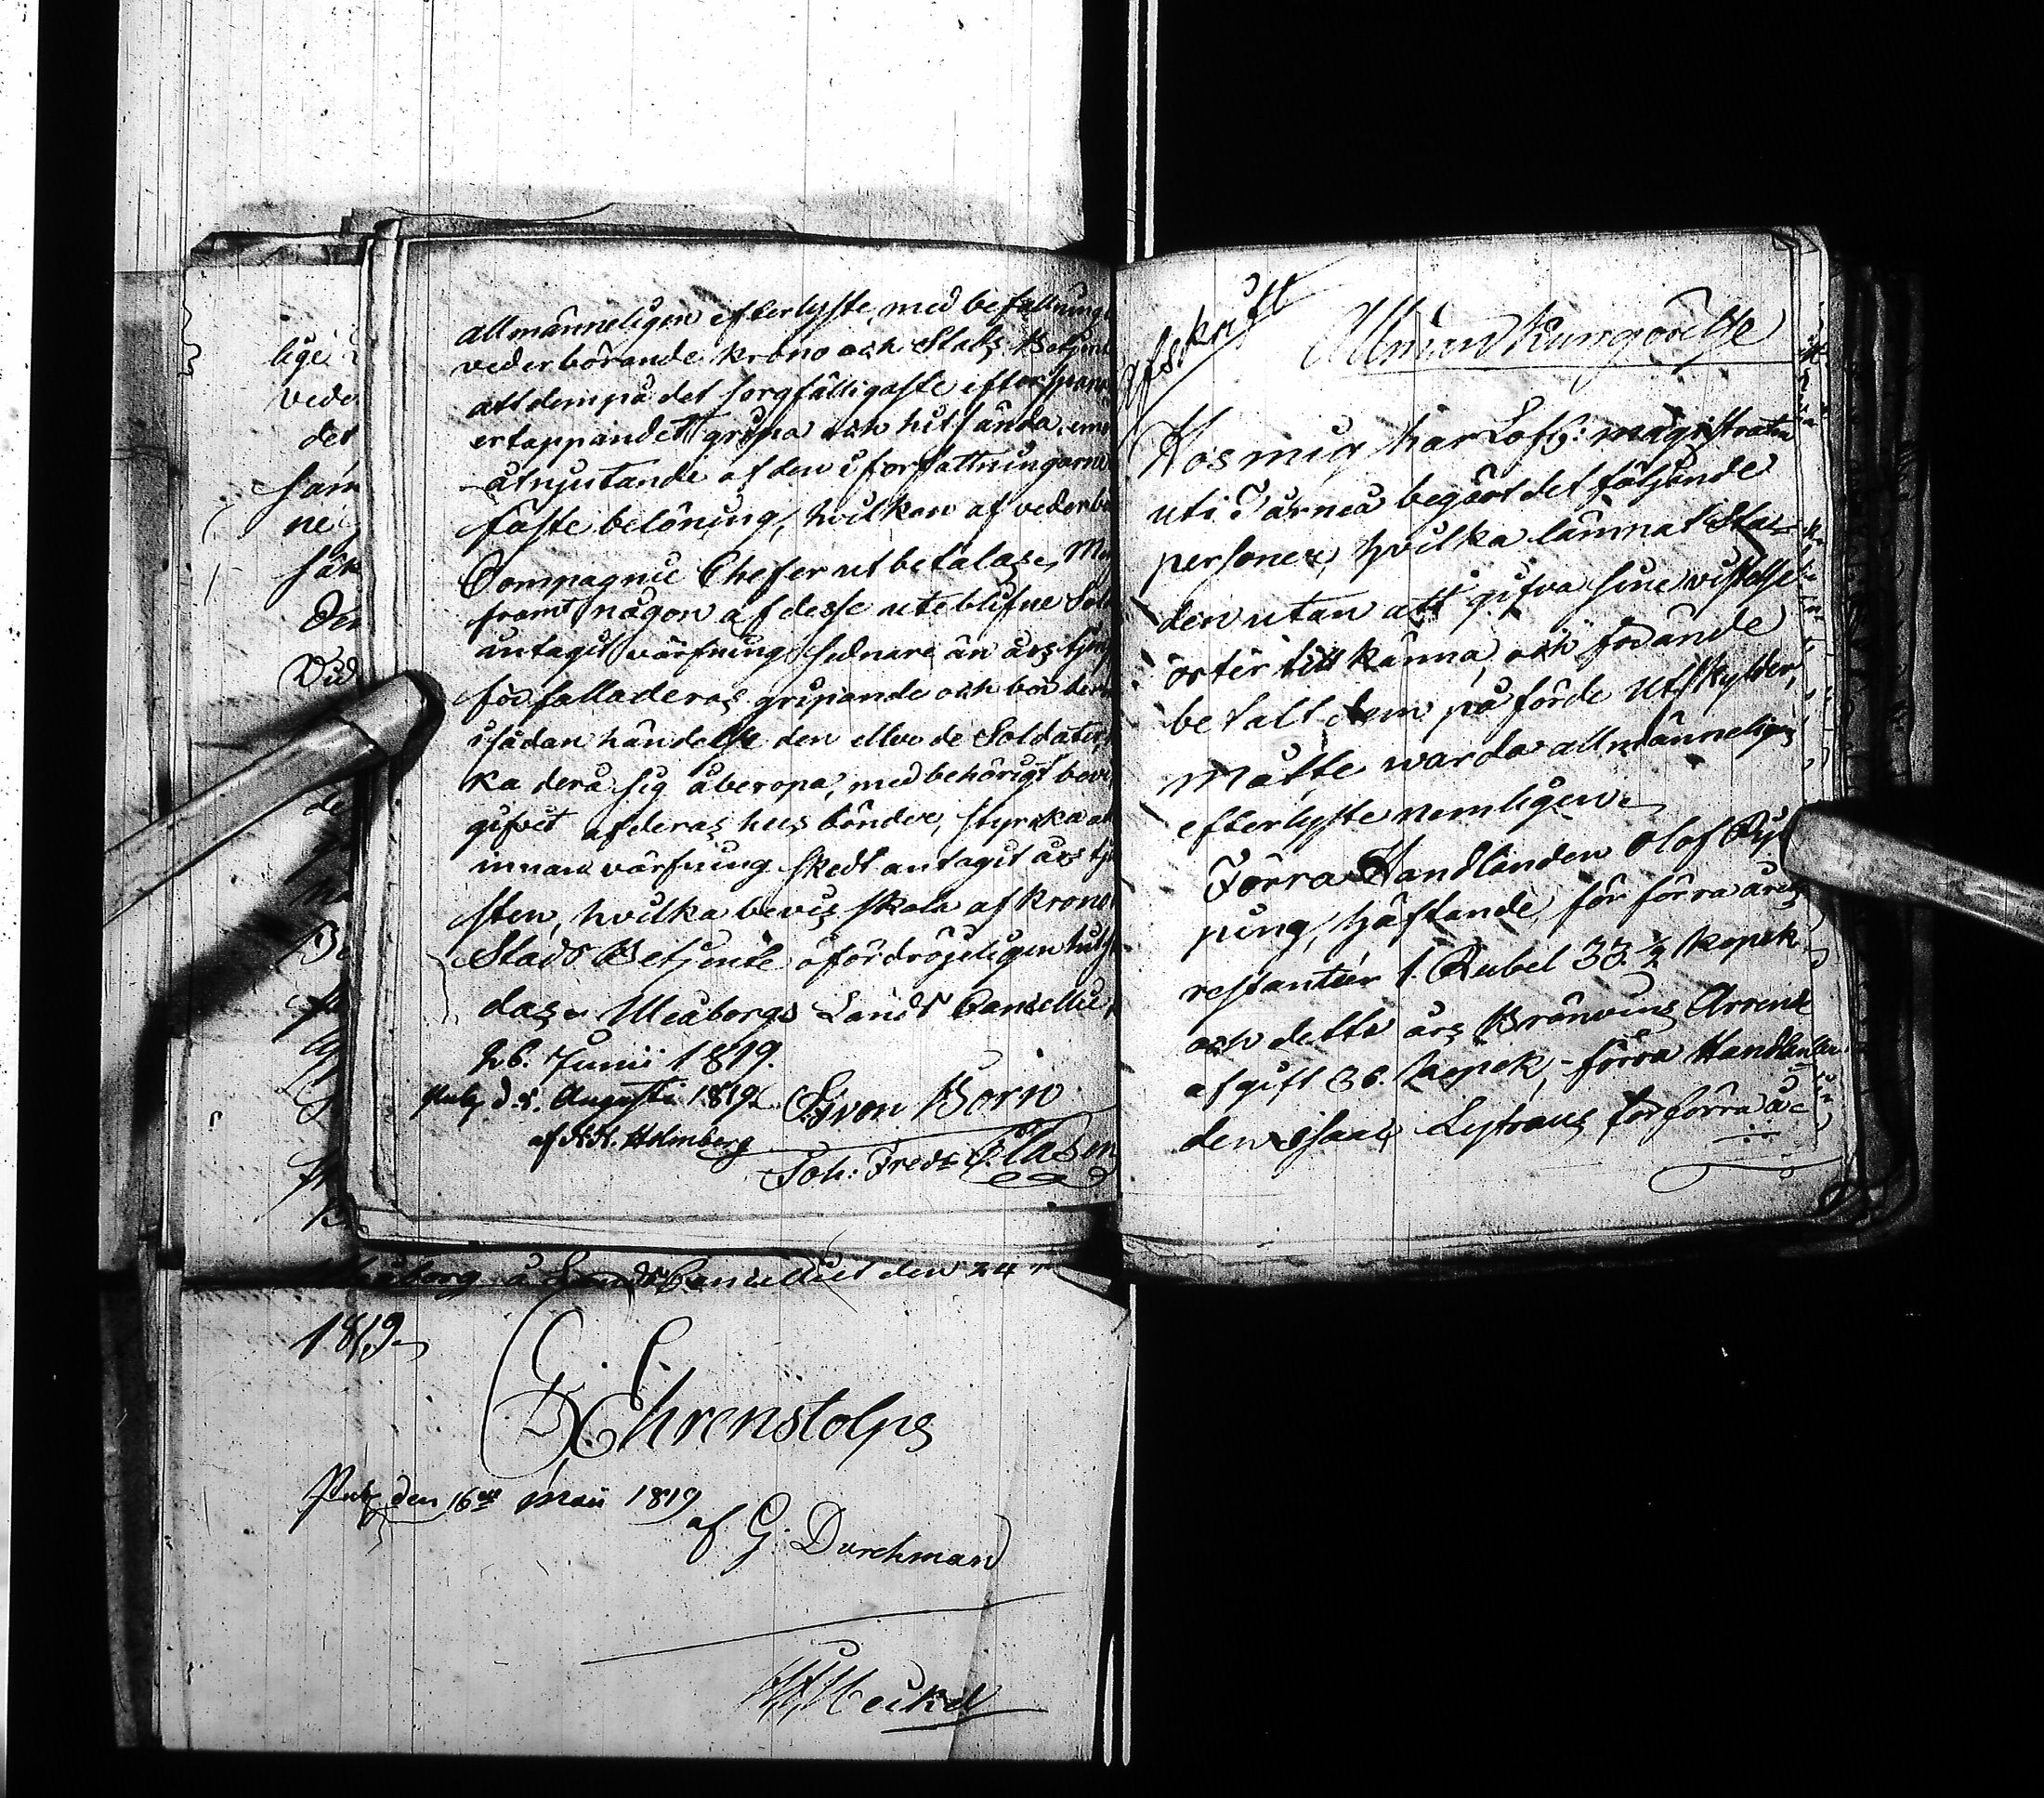 allmänneligen efterlyste, med befallning
vederbörande Krono och Stads Betjent
att dem på det sorgfälligaste efterspana
ertappandet gripa och hitsända, emo
åtnjutande af den i författningarne
fäste belöning, hvilken af vederbö
Compagnie Chefer utbetalas,
framt någon af desse uteblifne Sol
antagit värfning sednare än års tjen
förfalladeras gripande och bör
i sådan händelse den eller de Soldater,
ka derå sig åberopa, med behörigt bevi
gifvit af deras husbönder, styrka at
innan värfning skedt antagit års tje
sten, hvilka bevis skola af Krono
Stads Betjente ofördröjeligen
das. Uleåborgs Lands Cansellie,
26. Junii 1819.
Publ. d. 8. Augusti 1819. S. von Born
af H. H. Holmberg
Joh: Fredr
lige
vede
det
sam
ne
Den
Vid
de
Afskrift
Allmän Kungörelse
Hos mig har Lofl: magistraten
uti Torneå begärt det följande
personer, hvilka lämnat Sta-
den utan att gifva sine vistelse
orter till känna, och för ände
betalt dem påförde utskylder,
måtte warda allmänneligen
efterlyste nemligen.
Förra Handlanden Olof Ryt
ping, häftande för förra årets
restantier 1. Rubel 33 1/2 kopek
och detta års Bränvins Arrende
afgift 36. kopek, förra Handlan
den Isaac Lystraus för förra å-
Uleåborg å Lands Cancelliet den 24
1819
Ehrenstolpe
Publ. den 16de Maii 1819
af G: Durchman